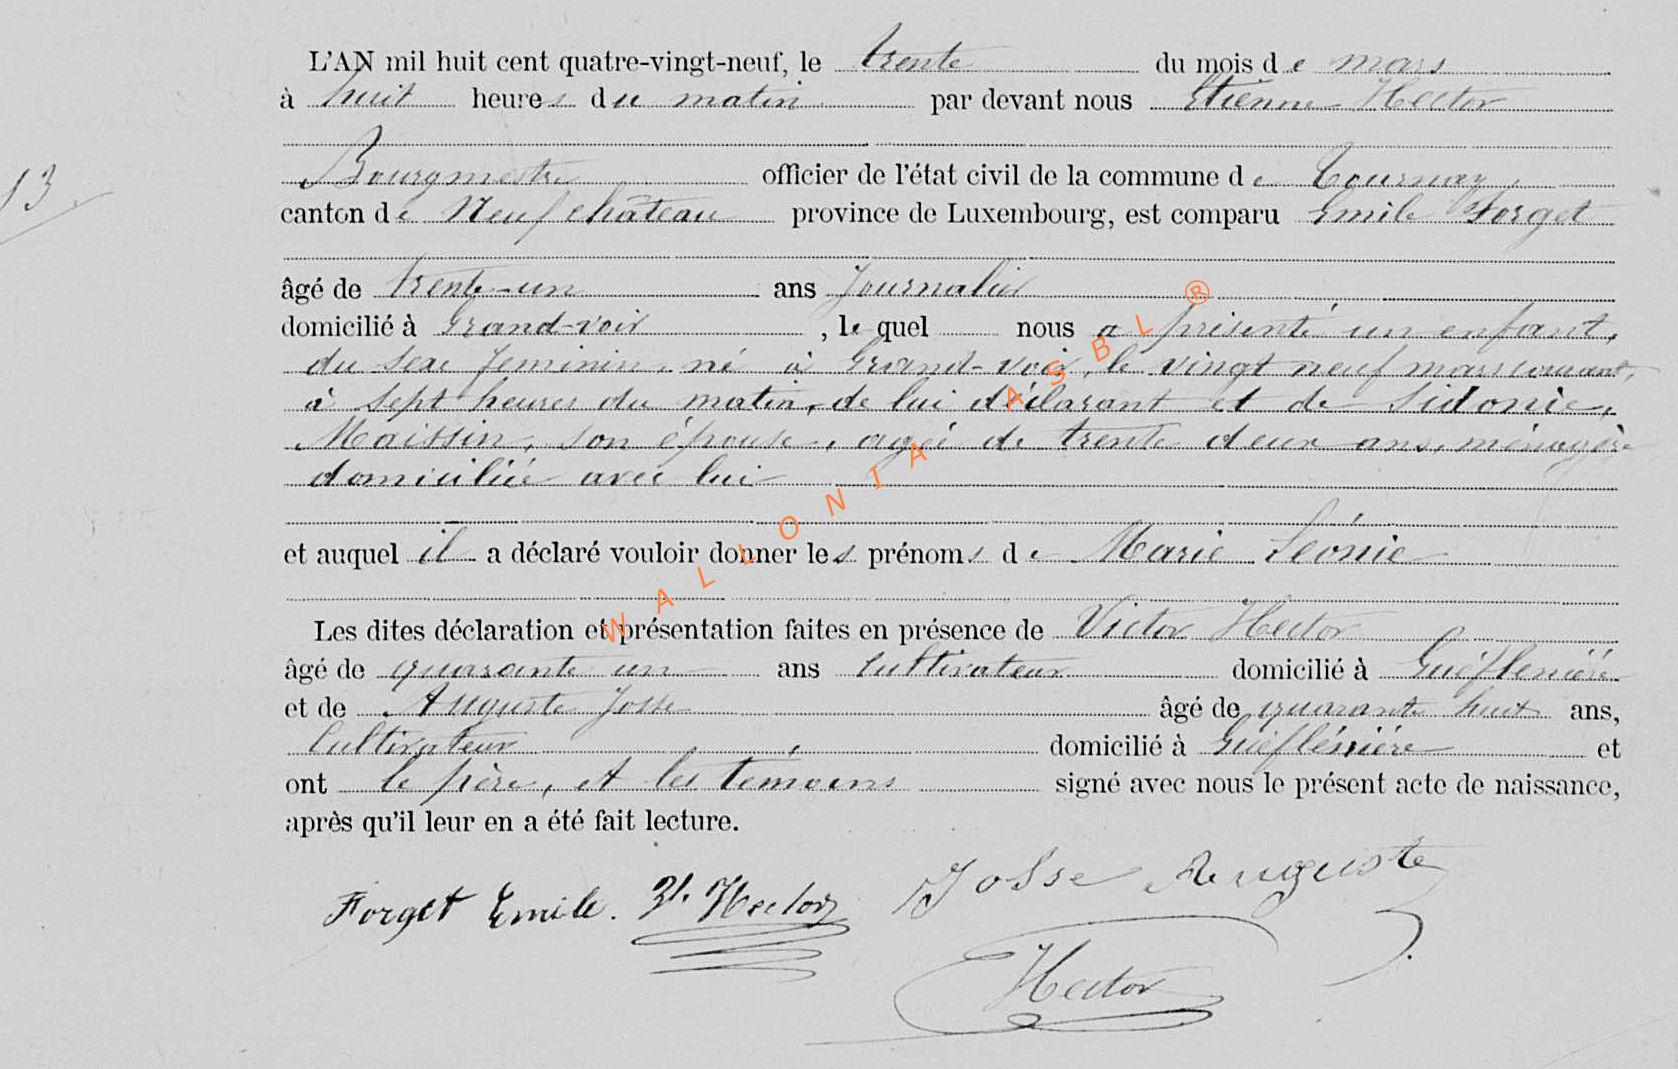 L'AN mil huit cent quatre-vingt-neuf, le trente du mois de mars
à huit heures du matin par devant nous Etienne Hector
Bourgmestre officier de l'état civil de la commune de Tournay,
13
canton de Neufchâteau province de Luxembourg, est comparu Emile Forget
âgé de trente-un ans Journalier
domicilié à Grand-voir, lequel nous a présenté un enfant,
du sexe feminin né à Grand-voir, le vingt neuf mars courant,
à sept heures du matin, de lui déclarant et de Sidonie,
Maissin, son épouse, agée de trente deux ans, ménagère
domiciliée avec lui
et auquel il a déclaré vouloir donner les prénoms de Marie Léonie
Les dites déclaration et présentation faites en présence de Victor Hector
âgé de quarante un ans cultivateur domicilié à
et de Auguste Josse âgé de quarante huit ans,
Cultivateur domicilié à et
ont le père, et les témoins signé avec nous le présent acte de naissance,
après qu'il leur en a été fait lecture.
Forget Emile. Hector Josse Auguste
Hector
WALLONIA ASBL ®